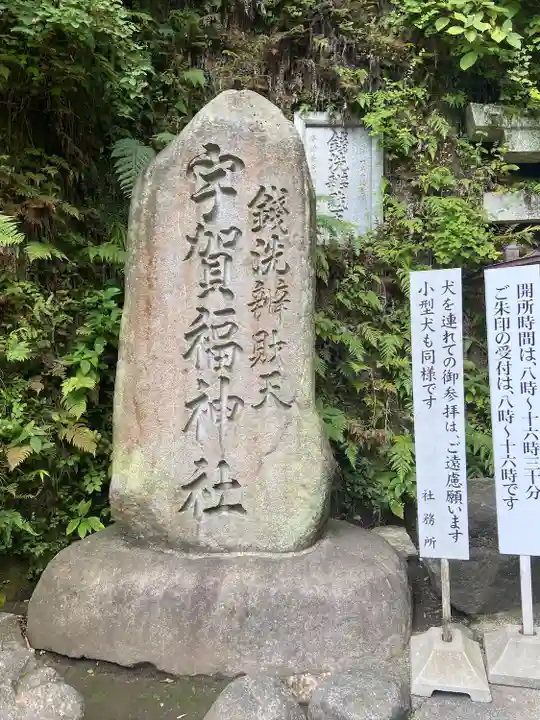 銭洗辨財天
宇賀福神社
銭洗辨財天
開所時間は、八時〜十六時三十分
ご朱印の受付は、八時〜十六時です
犬を連れての御参拝は、ご遠慮願います
小型犬も同様です
社務所